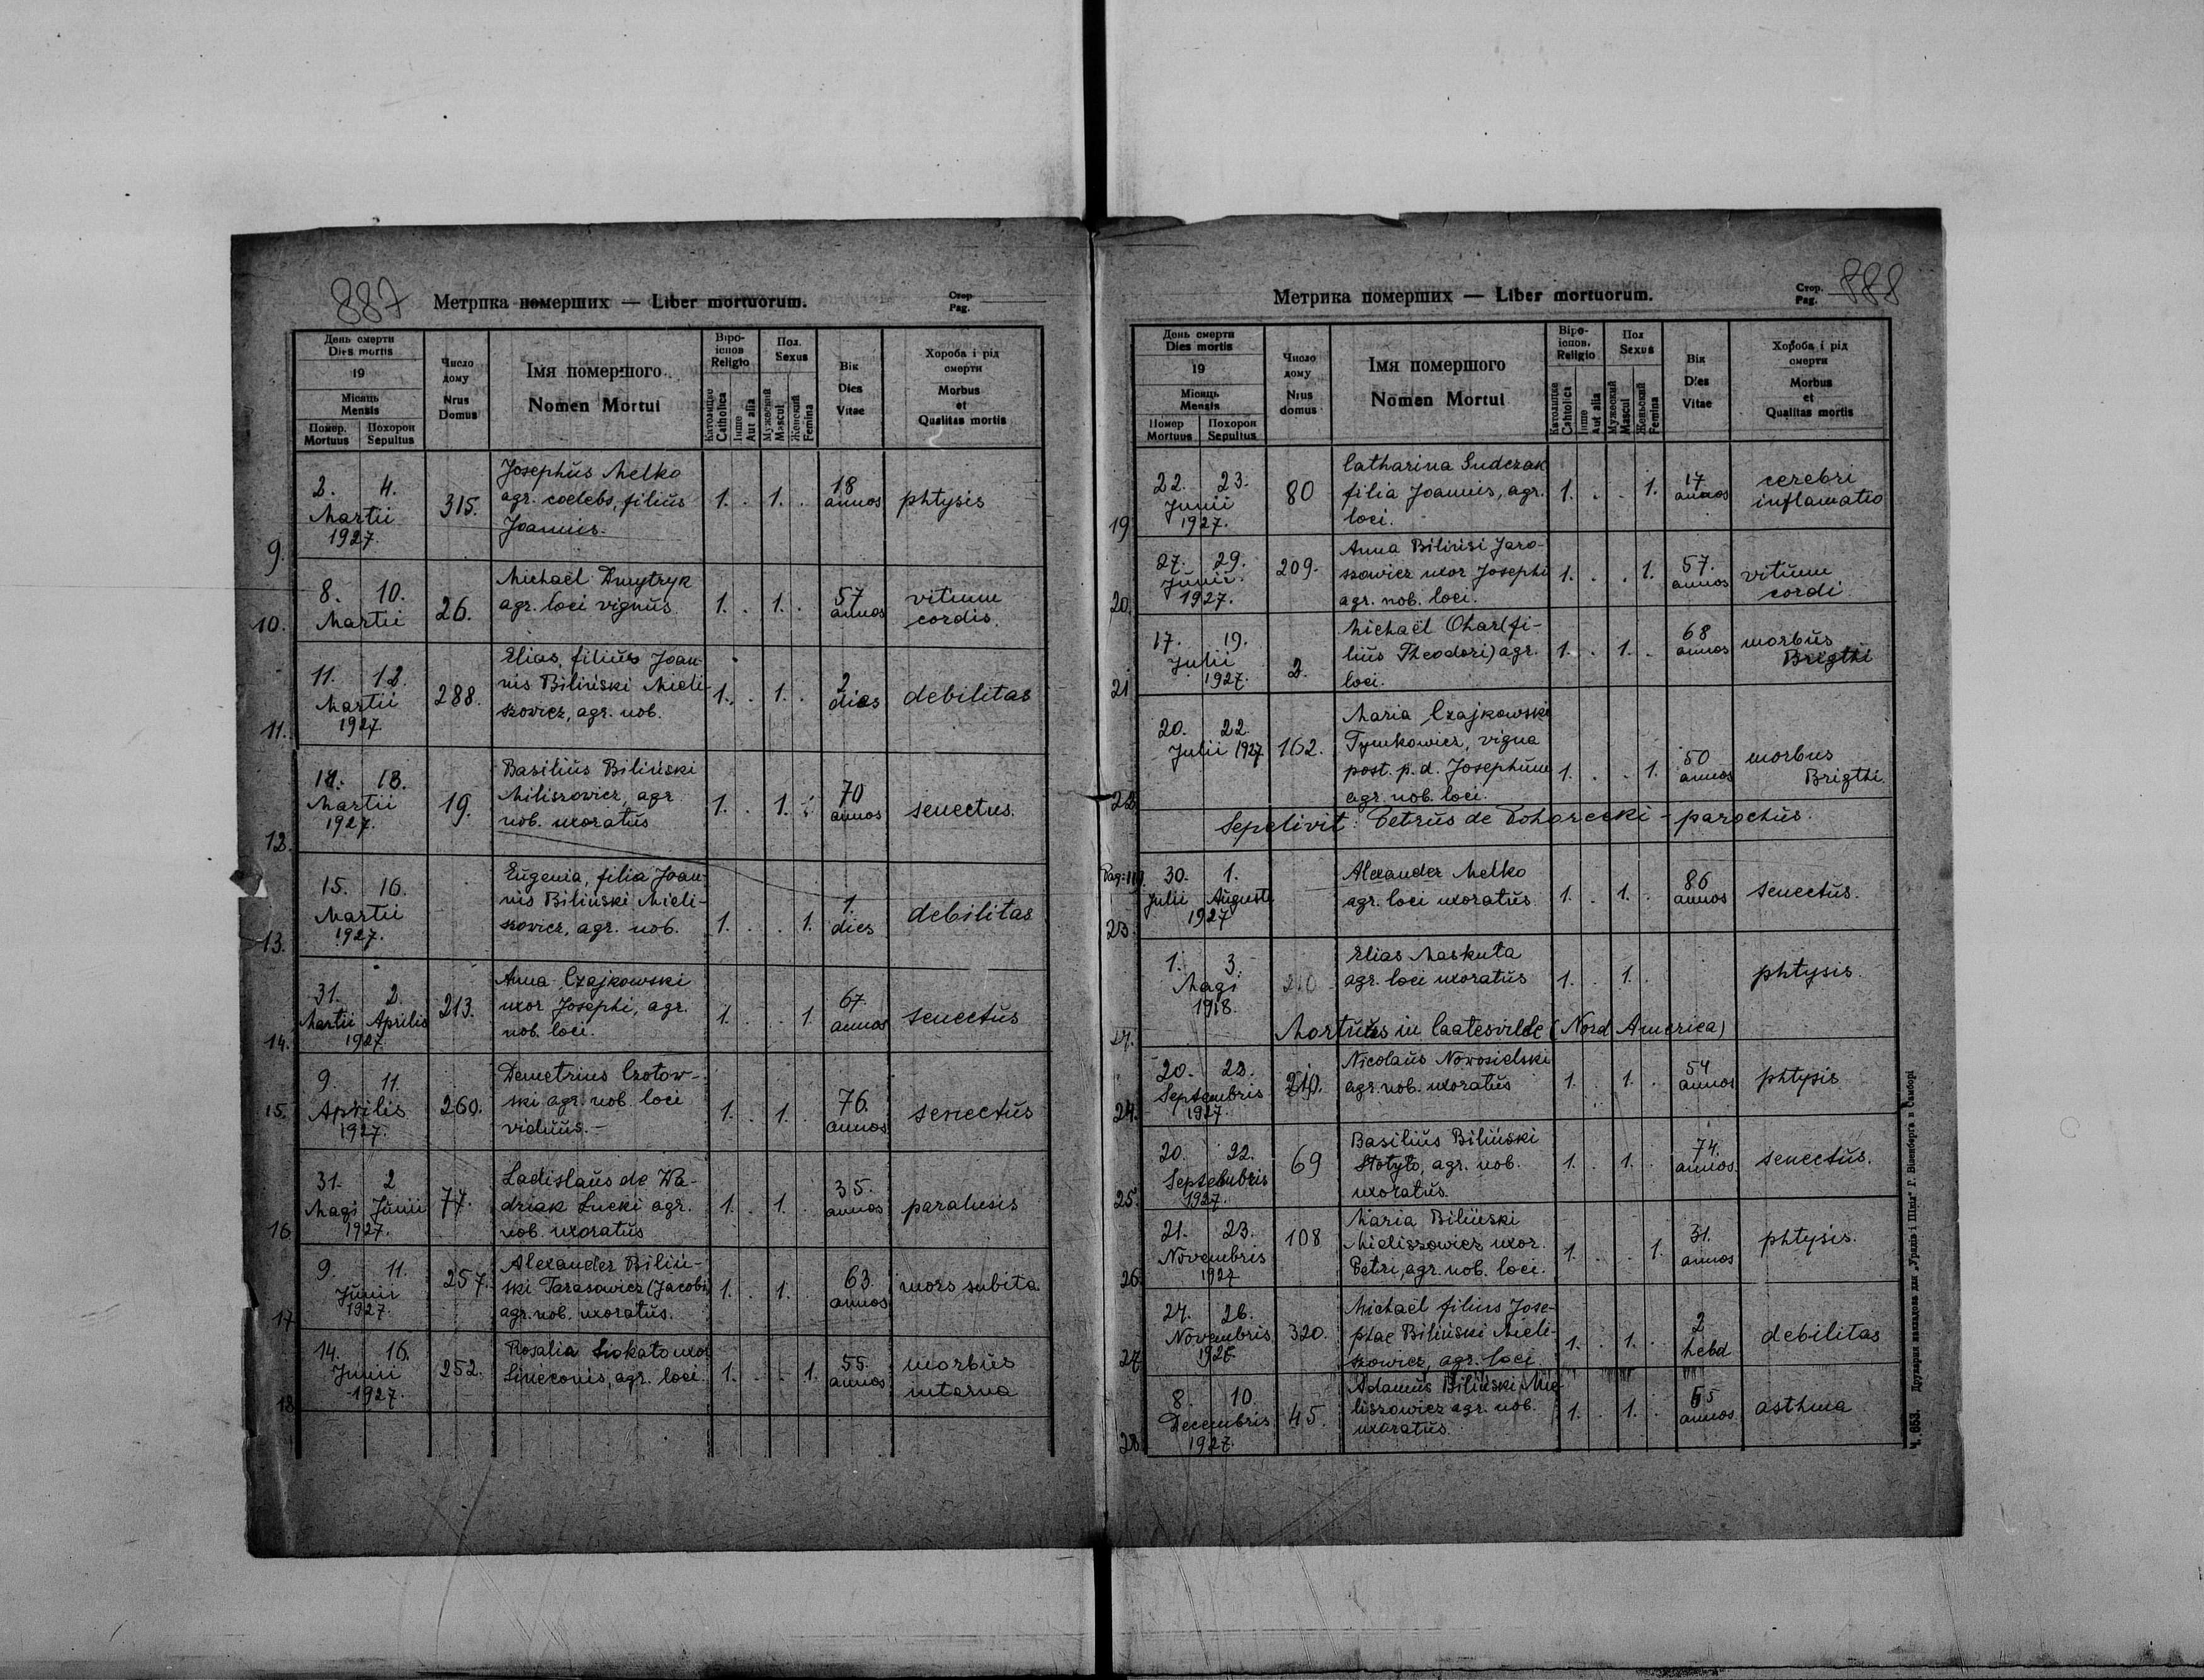 887
Метрпка померших — Liber mortuorum.
Стор.
Pag.
День смерти
Dies mortis
19
Місяць
Mensis
Помер. Похорон
Mortuus Sepultus
Число
дому
Nrus
Domus
Імя помершого
Nomen Mortui
Віро-
іспов
Religio
Католицке
Catholica
Інше
Aut alia
Пол.
Sexus
Мужеский
Mascul
Женский
Femina
Вік
Dies
Vitae
Хороба і рід
смерти
Morbus
et
Qualitas mortis
9.
2. 4.
Martii
1927.
315.
Josephus Melko
agr. coelebs, filius
Joannis.
1. . 1. .
18
annos
phtysis
10.
8. 10.
Martii
26.
Michaël Dmytryk
agr. loci vignus
1. . 1. .
57
annos
vitium
cordis.
11.
11. 12.
Martii
1927.
288.
Elias, filius Joan-
nis Biliński Mieli-
szowicz, agr. nob.
1. . 1. .
2
dies
debilitas
12.
18.
Martii
1927.
19.
Basilius Biliński
Miliszovicz, agr.
nob. uxoratus
1. . 1.
70
annos
senectus.
13.
15. 16.
Martii
1927.
Eugenia, filia Joan-
nis Biliński Mieli-
szovicz, agr. nob.
1. . . 1.
1.
dies
debilitas
14.
31. 2.
Martii Aprilis
1927.
213.
Anna Czajkowski
uxor Josephi, agr.
nob. loci.
1. . . 1
67.
annos
senectus
15.
9. 11.
Aprilis
1927.
260.
Demetrius Czotow-
ski agr. nob. loci
viduus.-
1. . 1. .
76.
annos
senectus
16
31. 2
Magi Junii
1927.
77.
Ladislaus de Wa-
driak Lucki agr.
nob. uxoratus
1. . 1. .
35.
annos
paralusis
17
9. 11.
Junii
1927.
257.
Alexander Biliń-
ski Tarasowicz (Jacobi)
agr. nob. uxoratus.
1. . 1. .
63.
annos
mors subita
18
14. 16.
Junii
1927.
252.
Rosalia uxor
agr. loci.
1. . . 1.
55.
annos
morbus
interna
888
Метрика померших — Liber mortuorum.
Стор.
Pag.
День смерти
Dies mortis
19
Місяць
Mensis
Помер Похорон
Mortuus Sepultus
Число
дому
Nrus
domus
Імя помершого
Nomen Mortui
Віро-
ісков.
Religio
Католицке
Cahtolica
Інше
Aut alia
Пол
Sexus
Мужеский
Mascul
Женьский
Femina
Вік
Dies
Vitae
Хороба і рід
смерти
Morbus
et
Qualitas mortis
19
22. 23.
Junii
1927.
80
Catharina Sudczak
filia Joannis, agr.
loci.
1. . . 1.
17
annos
cerebri
inflamatio
20.
27. 29.
Junii
1927.
209.
Anna Bilińsi Jaro-
szowicz uxor Josephi
agr. nob. loci.
1. . . 1.
57.
annos
vitium
cordi.
21
17. 19.
Julii
1927.
2.
Michaël Ohar (fi-
lius Theodori) agr.
loci.
1. . 1. .
68
annos
morbus
Brigthi
22
20. 22.
Julii 1927
162.
Maria Czajkowski
Tymkowicz, vigua
post. p. d. Josephum
agr. nob. loci.
1. . . 1.
50
annos
morbus
Brigthi.
Sepelivit: Petrus de Pohorecki - parochus.
23.
30. 1.
Julii Augusti
1927
Alexander Melko
agr. loci uxoratus
1. . 1. .
86
annos
senectus.
1. 3.
Magi
1918.
210
Elias Maskuta
agr. loci uxoratus
1. . 1. .
phtysis.
Mortuus in Caatesville (Nord America)
24.
20. 22.
Septembris
1927.
Nicolaus Nowosielski
agr. nob. uxoratus
1. . 1. .
54
annos
phtysis
25.
20. 22.
Septebubris
1927.
69
Basilius Biliński
Stotyto, agr. nob.
uxoratus.
1. . 1. .
74.
annos.
senectus.
26.
21. 23.
Novembris
1927
108
Maria Biliński
Mieliszowicz uxor.
Petri, agr. nob. loci.
1. . . 1.
31.
annos
phtysis.
27
24. 26.
Novembris
1927.
320.
Michaël filius Jose-
phae Biliński Mieli-
szowicz, agr. loci.
1. . 1. .
2
hebd
debilitas
28
8. 10.
Decembris
1927.
45.
Adamus Biliński Mie-
liszowicz agr. nob.
uxoratus
1. . 1. .
65
annos
asthma
Ч. 653. Друкарня накладова для „Урядів і Шкіл“ Г. Візенберга в Самборі